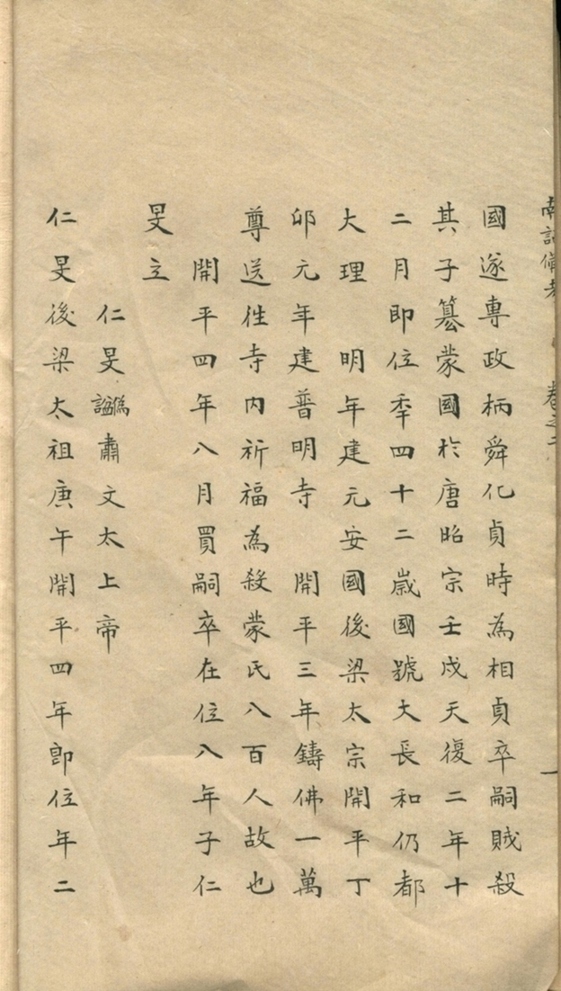 國遂專政柄舜化貞時為相貞卒嗣賊殺
其子簒蒙國於唐昭宗壬戍天復二年十
二月即位秊四十二歳國號大長和仍都
大理 明年建元安國後梁太宗開平丁
卯元年建普明寺 開平三年鑄佛一萬
尊送徃寺内祈福為殺蒙氏八百人故也
開平四年八月買嗣卒在位八年子仁
旻立
仁旻諡偽肅文太上帝
仁旻後梁太祖庚午開平四年即位年二